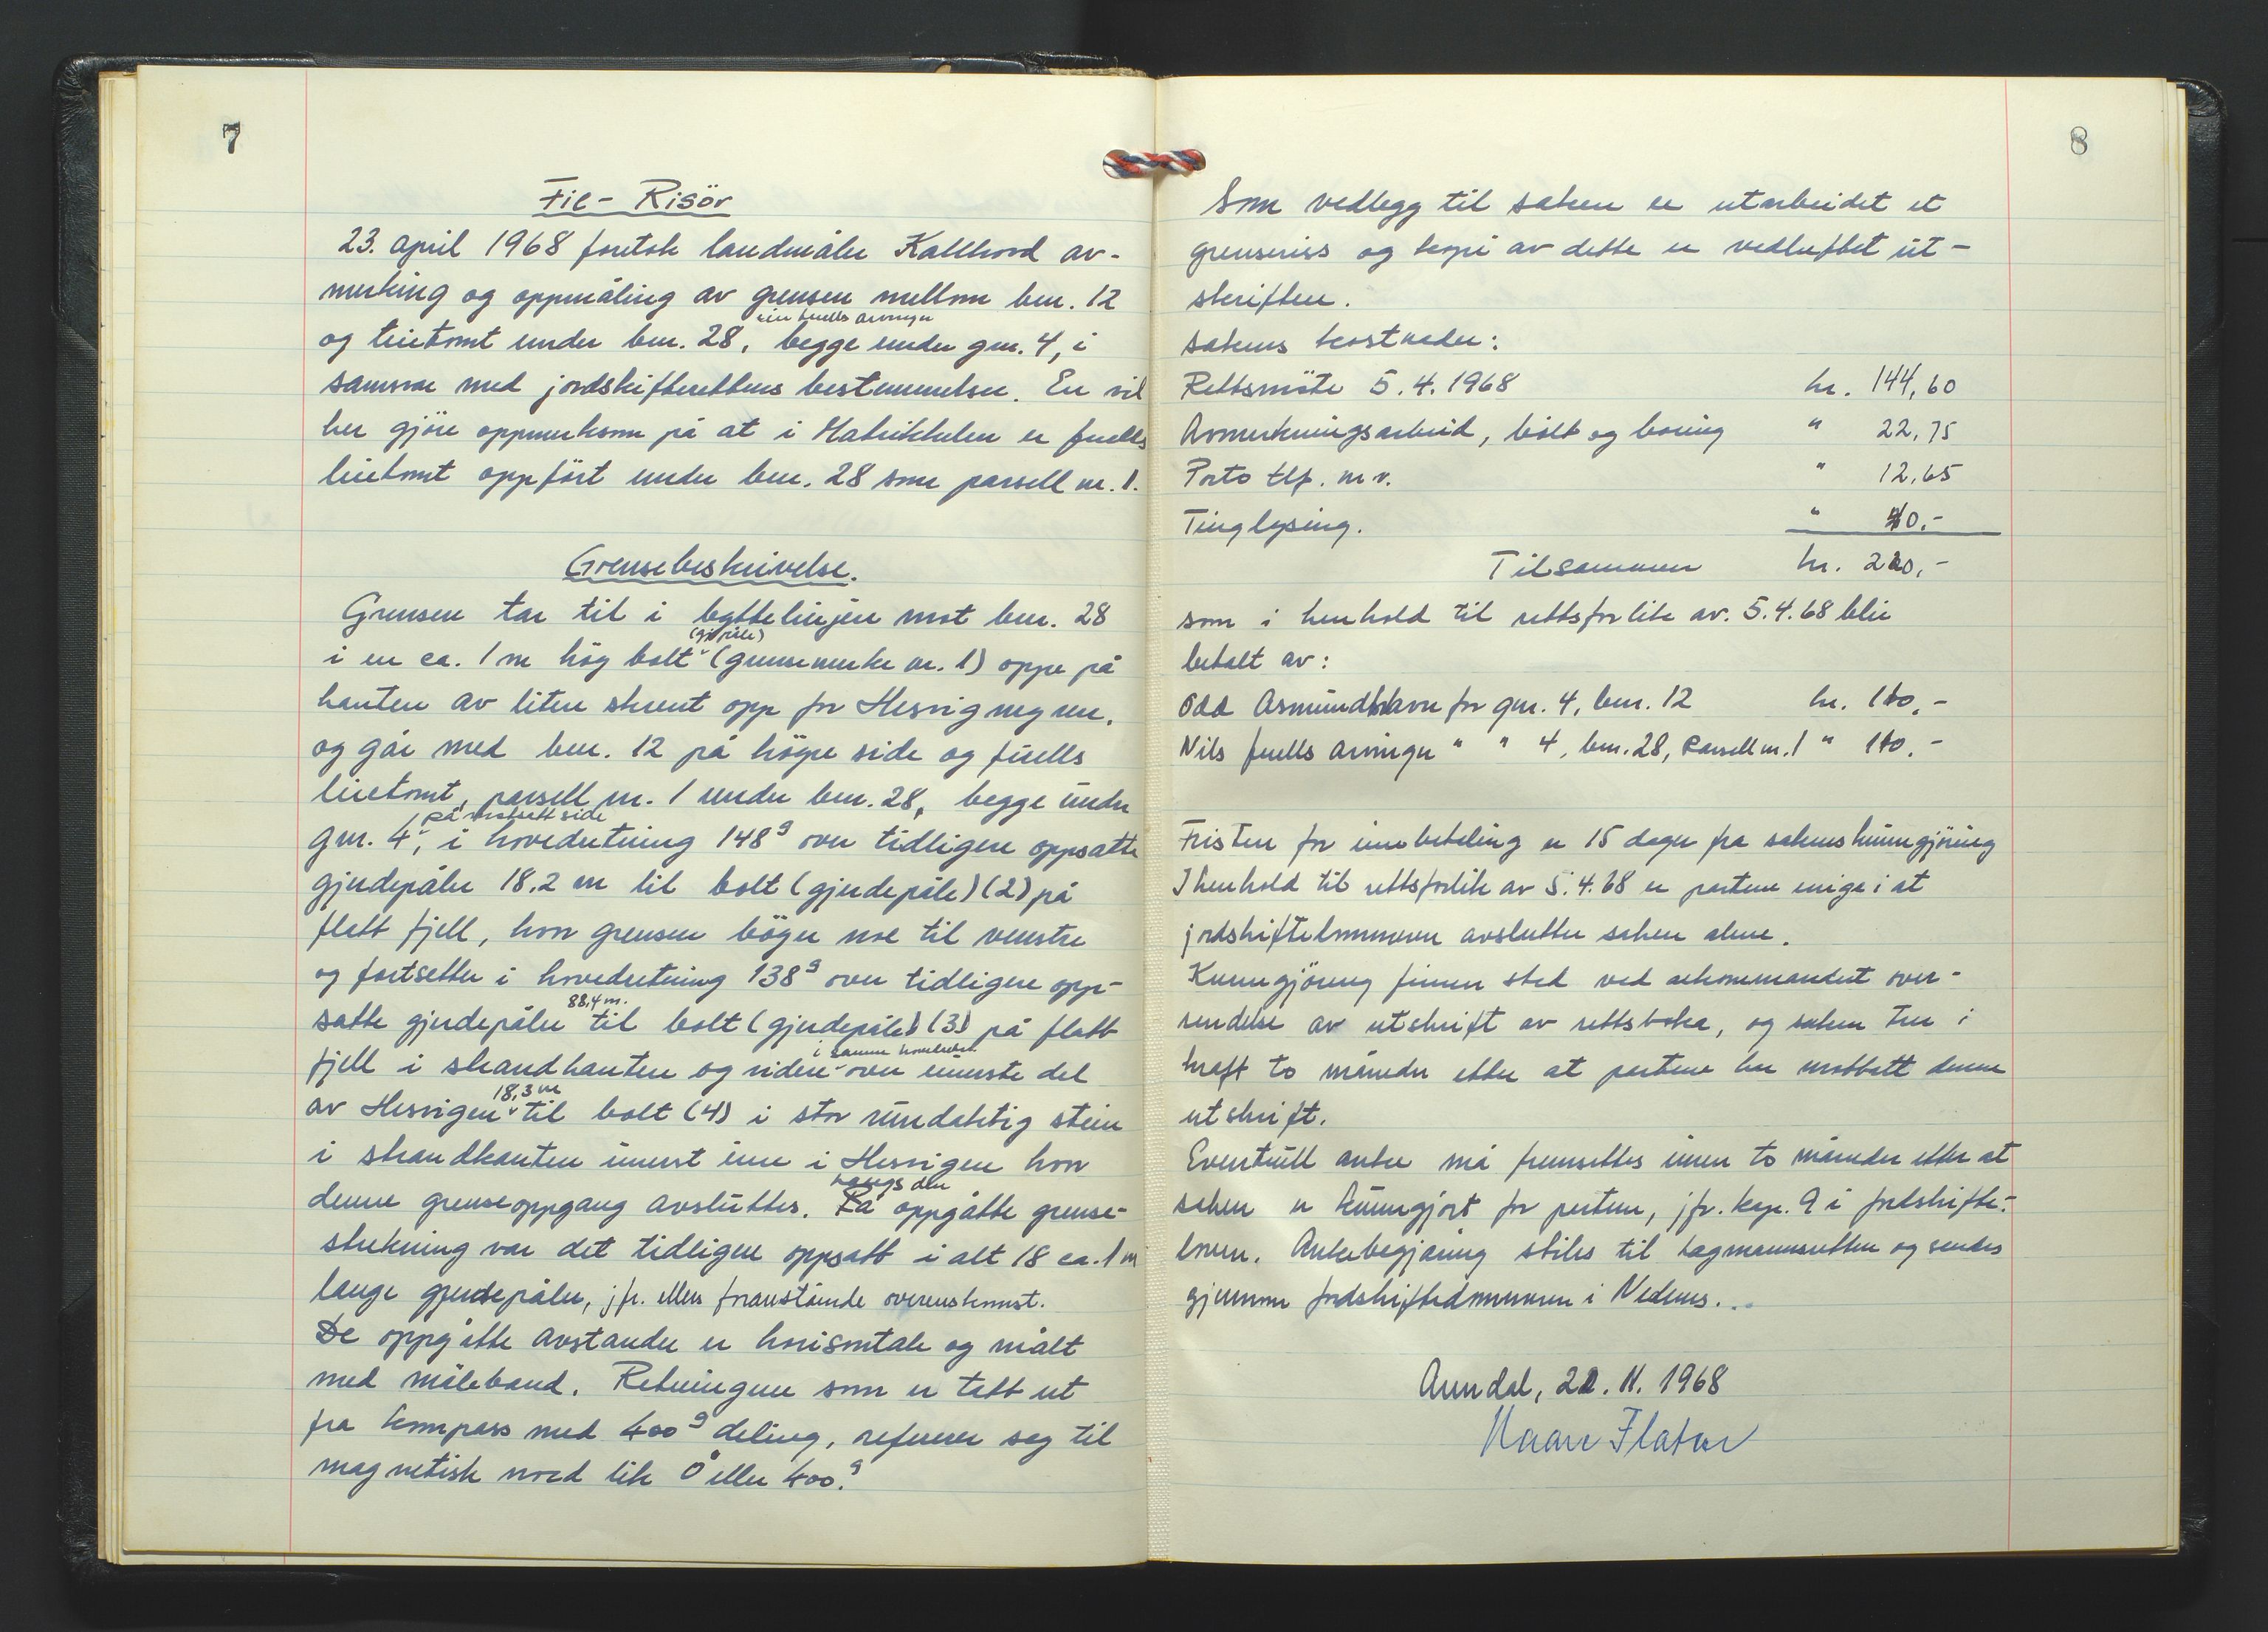 7
Fie - Risör
23. april 1968 foretok landmåler Kallhovd av-
merking og oppmåling av grensen mellom bnr. 12
og linetomt under bnr. 28, begge under gnr. 4, i
samsvar med jordskifterettens bestemmelser. En vil
her gjöre oppmerksom på at i Matrikkelen er Juells
linetomt oppfört under bnr. 28 som parsell nr. 1.
Grensebeskrivelse.
Grensen tar til i byttelinjen mot bnr. 28
i en ca. 1 m hög bolt (gjpåle) (grensemerke nr. 1) oppe på
kanten av liten skrent opp for Hesvigmyren,
og går med bnr. 12 på högre side og Juells
linetomt, parsell nr. 1 under bnr. 28, begge under
gnr. 4, på venstre side, i hovedretning 148g over tidligere oppsatte
gjerdepåler 18.2 m til bolt (gjerdepåle) (2) på
flatt fjell, hvor grensen böyer noe til venstre
og fortsetter i hovedretning 138g over tidligere opp-
satte gjerdepåler 88,4 m. til bolt (gjerdepåle) (3) på flatt
fjell i strandkanten og videre i samme hovedretn. over innerste del
av Hesvigen 18,3 m til bolt (4) i stor rundaktig stein
i strandkanten innerst inne i Hesvigen hvor
denne grenseoppgang avsluttes. Langs den oppgåtte grense-
strekning var det tidligere oppsatt i alt 18 ca. 1 m
lange gjerdepåler, jfr. ellers foranstående overenskomst.
De oppgåtte avstander er horisontale og målt
med måleband. Retningene som er tatt ut
fra kompass med 400g deling, referer seg til
magnetisk nord lik 0 eller 400g.
8
Som vedlegg til saken er utarbeidet et
grenseriss og kopi av dette er vedheftet ut-
skriften.
Sakens kostnader:
Rettsmöte 5.4.1968 kr. 144,60
Avmerkningsarbeid, bolt og boring " 22,75
Porto tlf. m v. " 12,65
Tinglysing. " 40.-
Tilsammen kr. 220,-
som i henhold til rettsforlik av 5.4.68 blir
betalt av:
Odd Asmundhavn for gnr. 4, bnr. 12 kr. 110,-
Nils Juells arvinger " " 4, bnr. 28, Parsell nr. 1 " 110.-
Fristen for innbetaling er 15 dager fra sakens kunngjöring
I henhold til rettsforlik av 5.4.68 er partene enige i at
jordskiftedommeren avslutter saken alene.
Kunngjöring finner sted ved rekommandert over-
sendelse av utskrift av rettsboka, og saken trer i
kraft to måneder etter at partene har mottatt denne
utskrift.
Eventuell anke må fremsettes innen to måneder etter at
saken er kunngjort for partene, jfr. kap. 9 i jordskifte-
loven. Ankebegjæring stiles til lagmannsretten og sendes
gjennom jordskiftedommeren i Nedenes.
Arendal, 22. 11. 1968